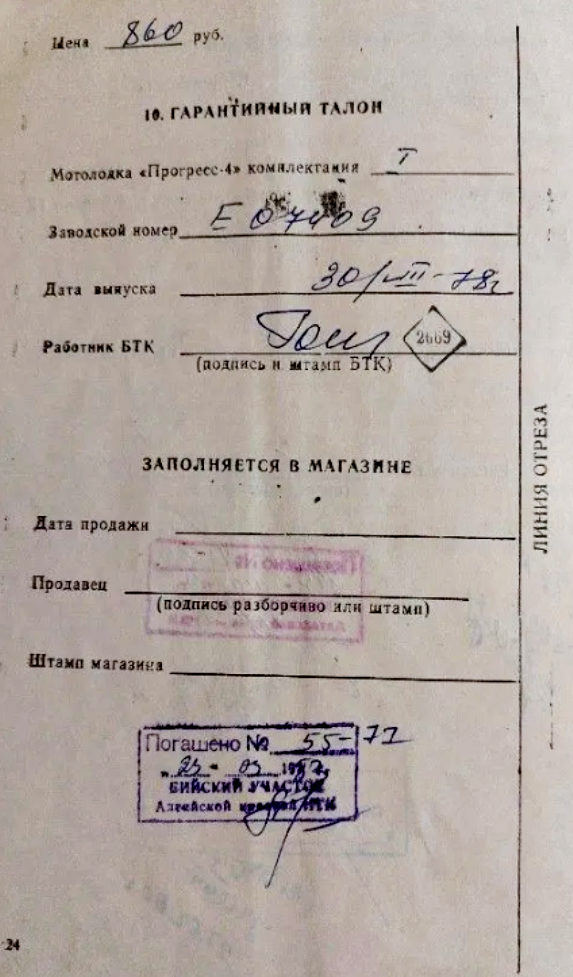 Цена 860 руб.
10. ГАРАНТИЙНЫЙ ТАЛОН
Мотолодка «Прогресс-4» комплектация I
Заводской номер Е07409
Дата выпуска 30/VIII-78г
Работник БТК 2669
(подпись и штамп БТК)
ЗАПОЛНЯЕТСЯ В МАГАЗИНЕ
Дата продажи
Продавец
(подпись разборчиво или штамп)
Штамп магазина
Погашено № 55-71
БИЙСКИЙ УЧАСТОК
Алтайской краевой
24
ЛИНИЯ ОТРЕЗА